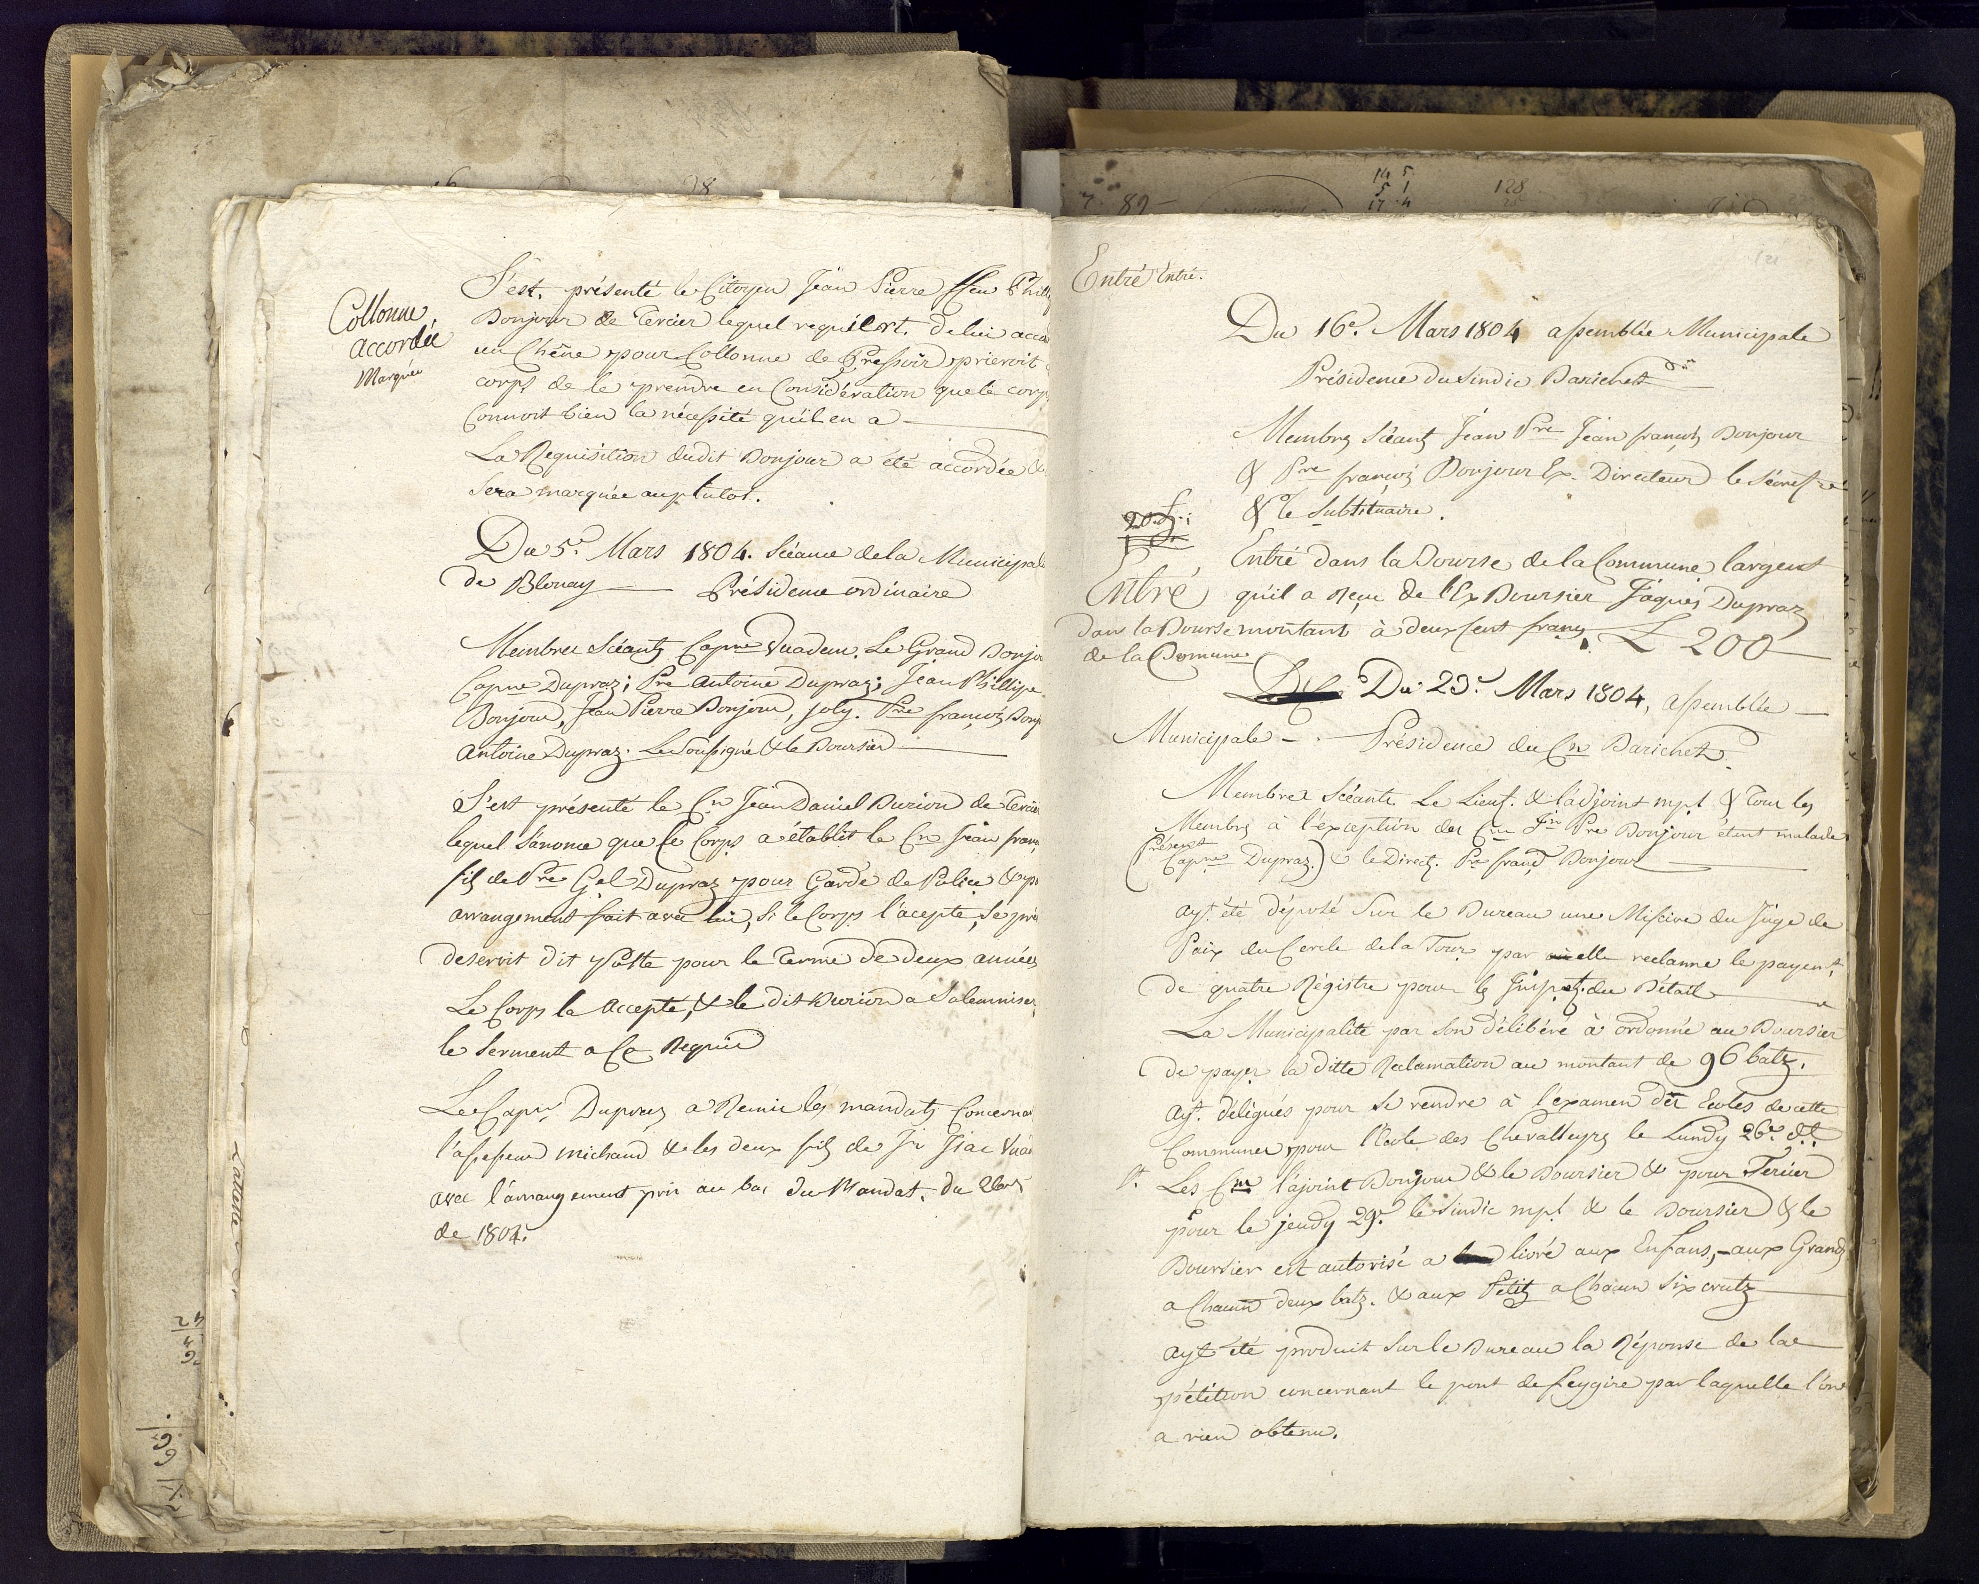 Collonne
accordée
Marquée
S'est. présenté le Citoyen Jean Pierre ffeu Phill
Bonjour de Tercier lequel requiert. de lui acco
un Chêne pour Collonne de Pressoir prieroit
corps de le prendre en Considération que le corps
Connoit bien la nécessité qu'il en a
La Requisition dudit Bonjour a été accordée &
Sera marquée auplutot.
Du 5e. Mars 1804. Séance de la Municipal
de Blonay Présidence ordinaire
Membres Séants Capne Vuadens. Le Grand Bonjo
Capne Dupraz; Pre Antoine Dupraz; Jean Phillipe
Bonjour, Jean Pierre Bonjour, joly. Pre françois Bonj
Antoine Dupraz. Le Soussigné & le Boursier
S'est présenté le Cn Jean Daniel Burion de Tercier
lequel Sanonce que le Corps a établit le Cn Jean fran
fils de Pre Gel Dupraz pour Garde de Police & p
arrangement fait avec lui, Si le Corps l'acepte, Se pré
deservir dit Poste pour le Terme de deux années
Le Corps la accepté, & le dit Burion a Solemniser
le Serment a Ce Requis
Le Capne. Dupraz a Remis les mandats Concerna
l'assesseur michaud & les deux fils de Jn Isac Vua
avec l'arrangement pris au bas du Mandat. du
de 1804.
Entré Entré.
Du 16e. Mars 1804 assemblée Municipale
Présidence du Sindic Barichet
Membres Séants Jean Pre Jean françois Bonjour
& Pre françois Bonjour Ex-Directeur le Sécretre
& le Substituaire.
Entré dans la Bourse de la Commune largent
Entré qu'il a Reçu de l'Ex Boursier Jaques Dupraz
dans la Bourse montant à deux Cent francs L 200
de la Comune
Du 23e. Mars 1804, assemblée
Municipale - . Présidence du Cn Barichet
Membres Séants Le Lieut. & l'adjoint mpl & Tous les
Membres à l'exception des Cns Jn Pre Bonjour étant malade
(Présent Capne Dupraz.) & le Direct. Pre franç Bonjour
Ayt. été déposé Sur le Bureau une Missive du Juge de
Paix du Cercle de la Tour par elle reclame le payent.
de quatre Régistre pour les Inspect. du Bétail
La Municipalité par Son délibéré à ordonné au Boursier
de payer la ditte Reclamation au montant de 96 batz.
Ayt. délégués pour Se rendre à l'examen des Ecoles de cette
Commune, pour l'Ecole des Chevalleyres le Lundy 26e. dt.
Les Cns l'ajoint Bonjour & le Boursier & pour Tercier
pour le jeudy 29e. le Sindic mpl & le Boursier & le
Boursier est autorisé a livré aux Enfans, - aux Grands
a Chacun deux batz. & aux Petits a Chacun Six crutz
Ayt été produit Sur le Bureau la Réponse de la
pétition concernant le pont de feygire par laquelle l'on
a rien obtenu.